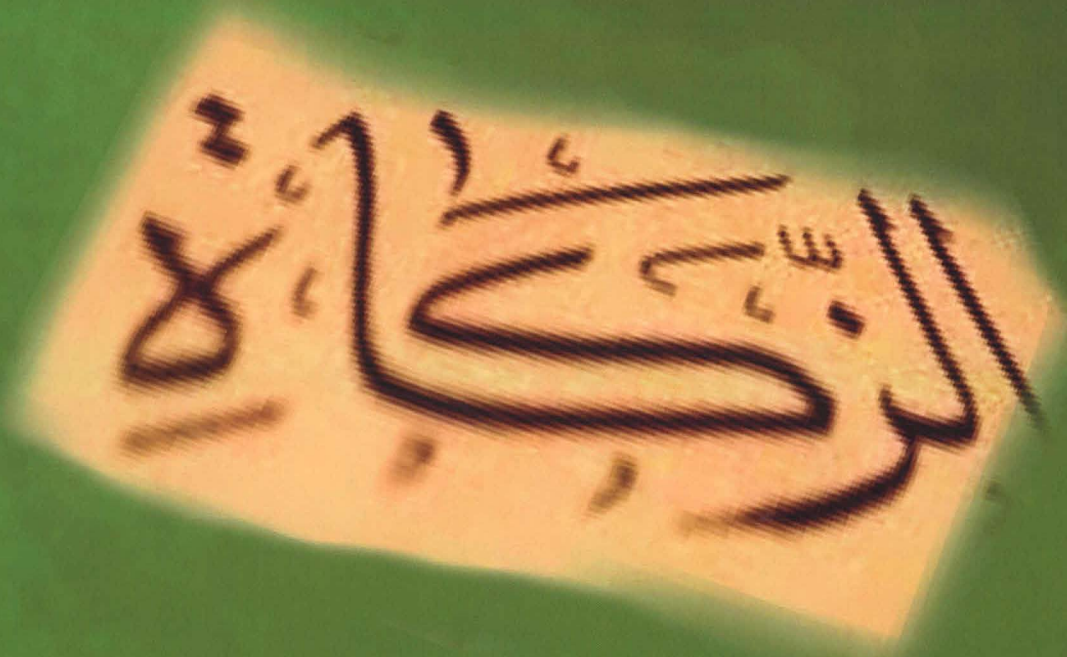 الزَّكَاةِ